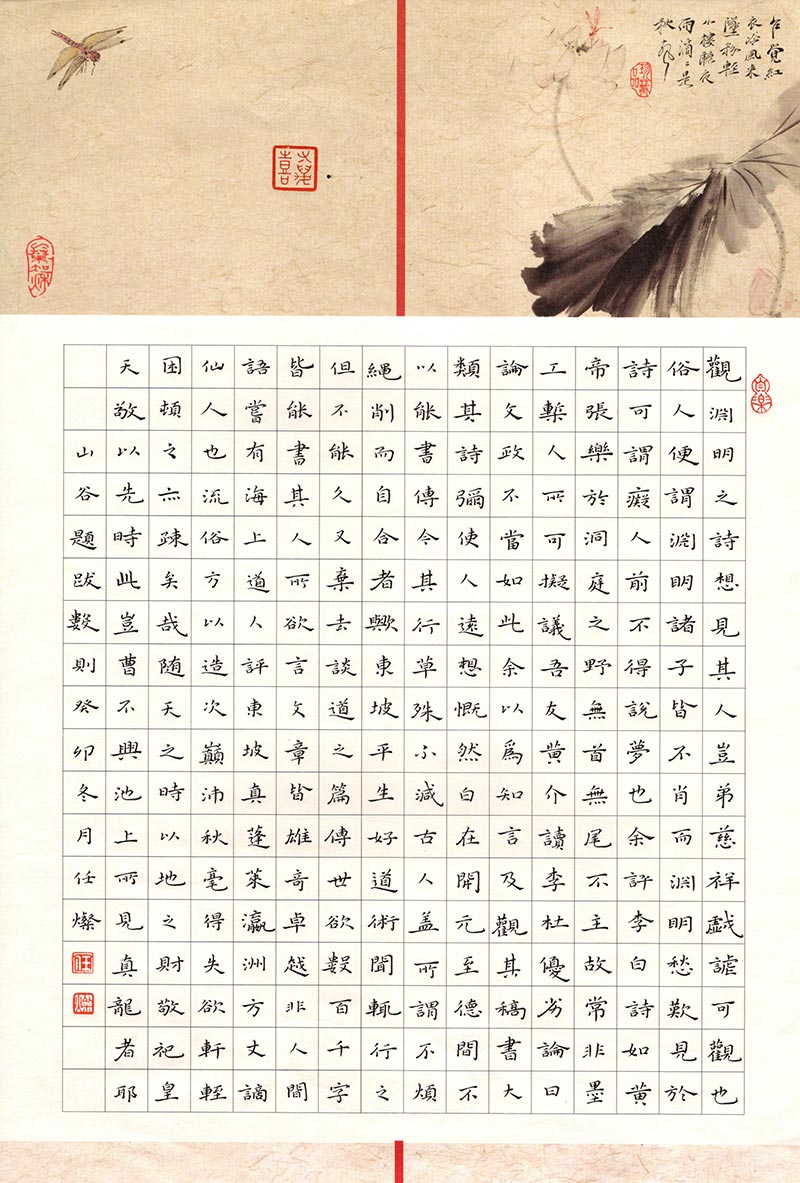 乍覺紅
衣浴風来
墜粉輕
小樓聽夜
雨滴〻是
秋聲
觀淵明之詩想見其人豈弟慈祥戲謔可觀也
俗人便謂淵明諸子皆不肖而淵明愁歎見於
詩可謂癡人前不得說夢也余評李白詩如黃
帝張樂於洞庭之野無首無尾不主故常非墨
工槧人所可擬議吾友黃介讀李杜優劣論曰
論文政不當如此余以為知言及觀其稿書大
類其詩彌使人遠想慨然白在開元至德間不
以能書傳今其行草殊不減古人盖所謂不煩
繩削而自合者歟東坡平生好道術聞輒行之
但不能久又棄去談道之篇傳世欲數百千字
皆能書其人所欲言文章皆雄奇卓越非人間
語嘗有海上道人評東坡真蓬萊瀛洲方丈謫
仙人也流俗方以造次巔沛秋毫得失欲軒輊
困頓之亦疎矣哉随天之時以地之財敬祀皇
天敬以先時此豈曹不興池上所見真龍者耶
山谷題跋數則癸卯冬月任燦
任
燦